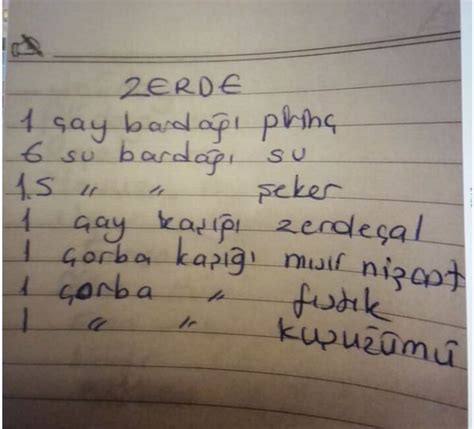 ZERDE
1 çay bardağı pirinç
6 su bardağı su
1.5 " " şeker
1 çay kaşığı zerdeçal
1 çorba kaşığı mısır nişast
1 çorba " fıstık
1 " " kuşüzümü